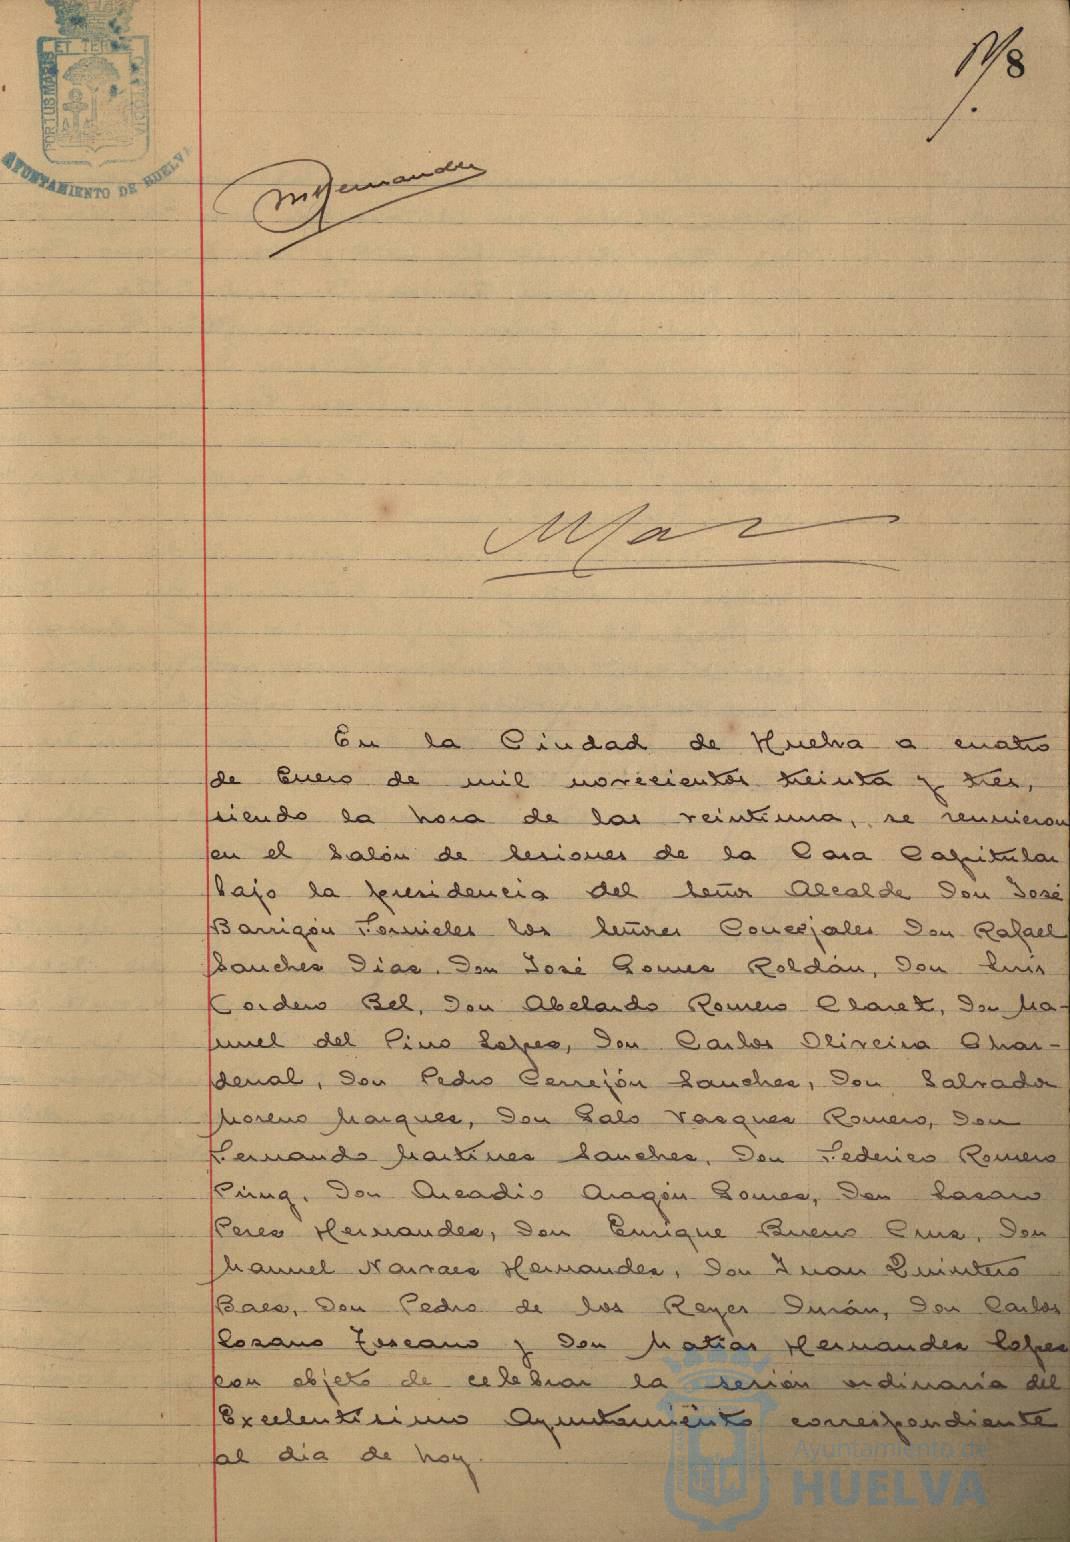 PORTUS MARIS ET TERRE CUSTODIA
AYUNTAMIENTO DE HUELVA
8
MHernandez
En la Ciudad de Huelva a cuatro
de Enero de mil novecientos treinta y tres,
siendo la hora de las veintiuna, se reunieron
en el Salón de Sesiones de la Casa Capitular
bajo la presidencia del Señor Alcalde Don José
Barrigón Fornieles los Señores Concejales Don Rafael
Sanchez Diaz, Don José Gomez Roldán, Don Luis
Cordero Bel, Don Abelardo Romero Claret, Don Ma-
nuel del Pino Lopez, Don Carlos Oliveira Char-
denal, Don Pedro Cerrejón Sanchez, Don Salvador
Moreno Marquez, Don Galo Vazquez Romero, Don
Fernando Martinez Sanchez, Don Federico Romero
Don Arcadio Aragón Gomez, Don
Perez Hernandez, Don Enrique Bueno Cruz, Don
Manuel Narvaez Hernandez, Don Juan Quintero
Baez, Don Pedro de los Reyes Durán, Don Carlos
Lozano Toscano y Don Matías Hernandez Lopez
con objeto de celebrar la sesión ordinaria del
Excelentísimo Ayuntamiento correspondiente
al día de hoy.
Ayuntamiento de
HUELVA